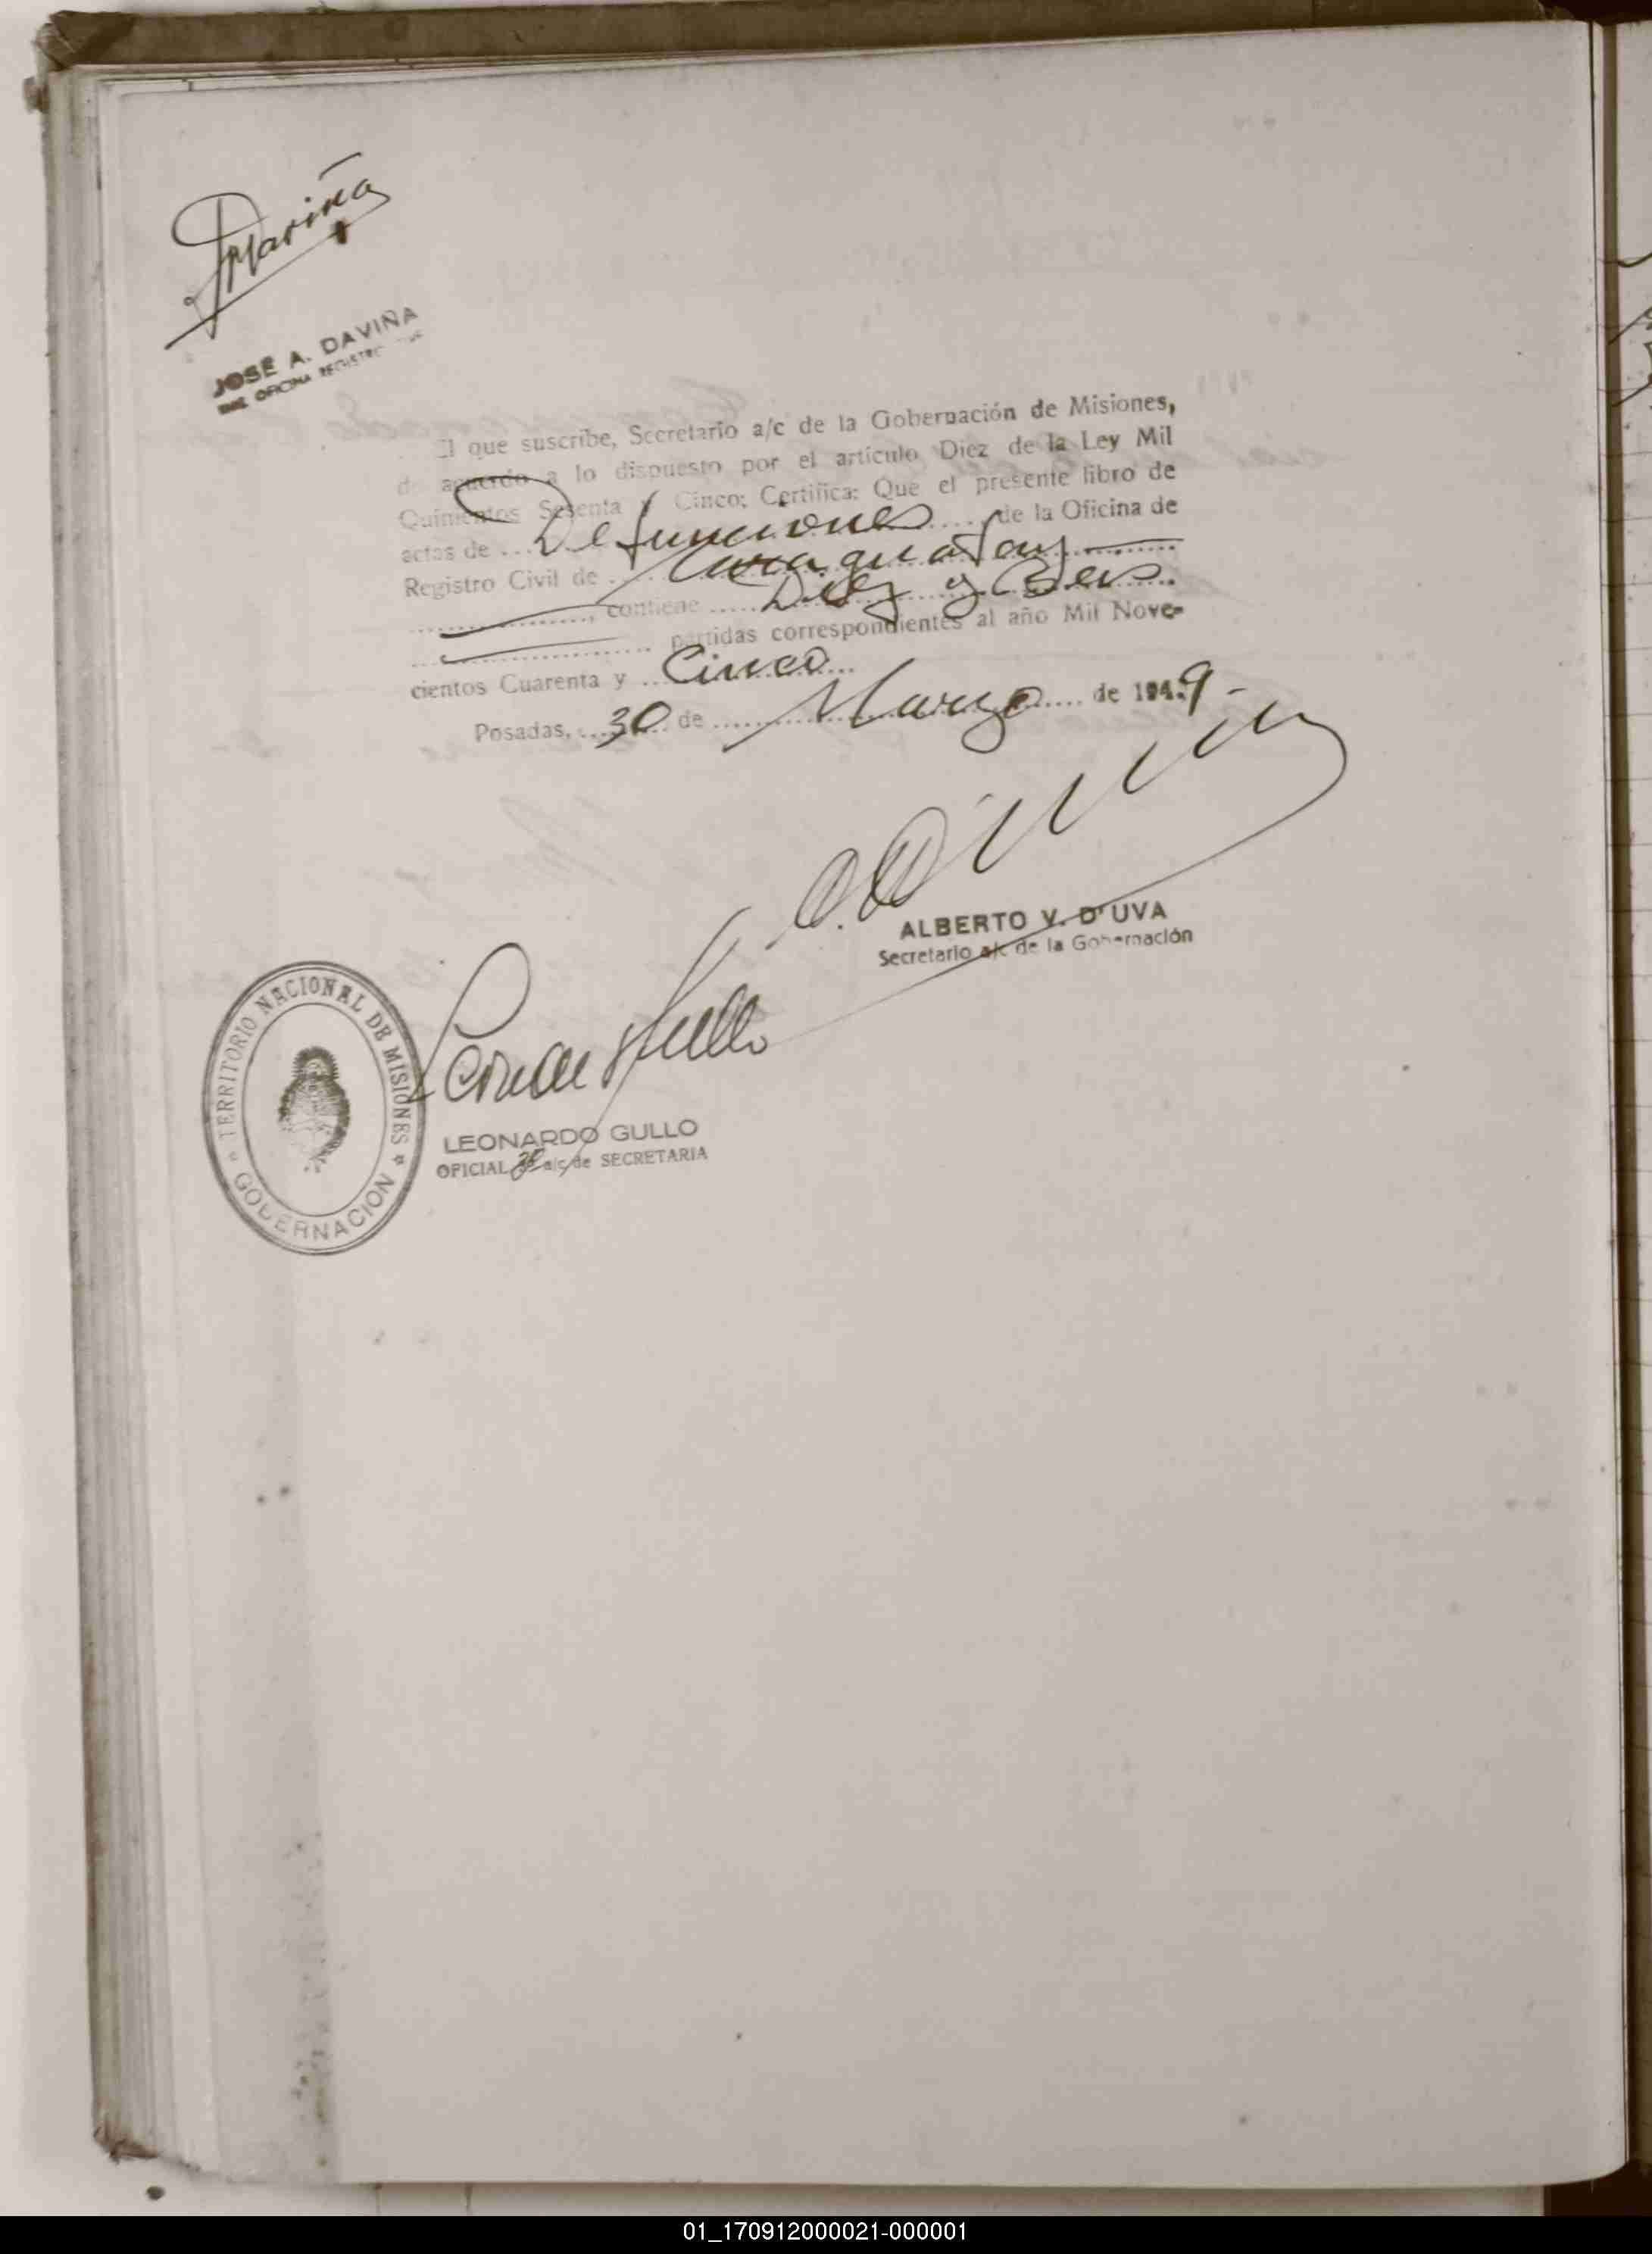 JOSE A. DAVIÑA
OFICINA REGISTRO
El que suscribe, Secretario a/c de la Gobernación de Misiones,
de acuerdo a lo dispuesto por el artículo Diez de la Ley Mil
Quinientos Sesenta y Cinco; Certifica: Que el presente libro de
actas de ... Defunciones .... de la Oficina de
Registro Civil de .... Caraguatay ........
................, contiene ..... Diez y Seis.
..................... partidas correspondientes al año Mil Nove-
cientos Cuarenta y ... Cinco ...
Posadas, ... 30 de ........ Marzo ..... de 1949-
ALBERTO V. D'UVA
Secretario a/c de la Gobernación
TERRITORIO NACIONAL DE MISIONES
GOBERNACION
Leonardo Gullo
LEONARDO GULLO
OFICIAL a/c de SECRETARIA
01_170912000021-000001